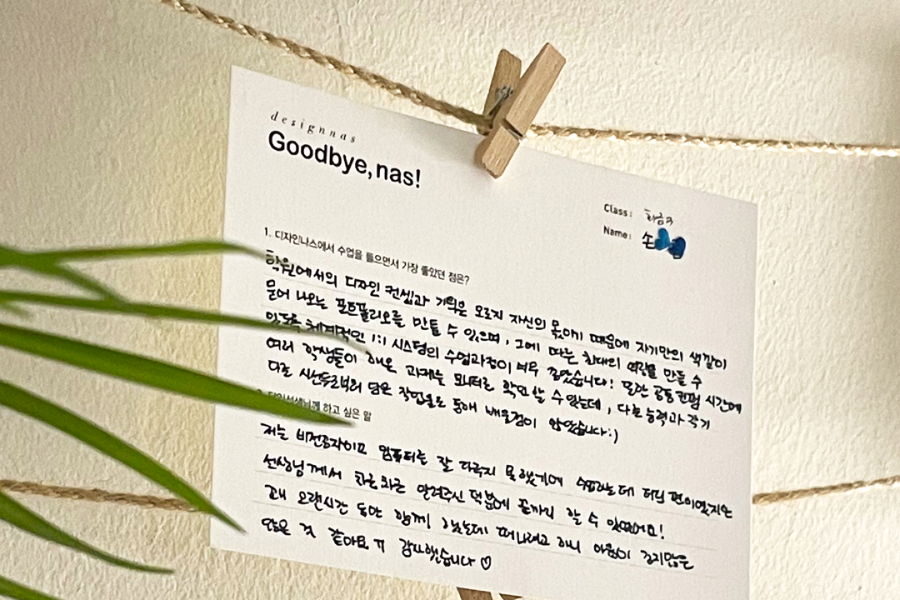 designnas
Goodbye,nas!
Class: 화금3
Name: 손
1. 디자인나스에서 수업을 들으면서 가장 좋았던 점은?
학원에서의 디자인 컨셉과 기획은 오로지 자신의 몫이기 때문에 자기만의 색깔이
묻어 나오는 포트폴리오를 만들 수 있으며, 그에 따른 최대의 역량을 만들 수
있도록 체계적인 1:1 시스템의 수업과정이 너무 좋았습니다! 또한 공통컨펌 시간에
여러 학생들이 해온 과제를 모니터로 확인 할 수 있는데, 다른 능력과 각기
다른 시선으로부터 담은 작업물로 통해 배울점이 많았습니다:)
하고 싶은 말
저는 비전공자이고 컴퓨터를 잘 다루지 못했기에 수업하는데 더딘 편이였지만
선생님께서 하나 하나 알려주신 덕분에 끝까지 할 수 있었어요!
꽤 오랜시간 동안 함께 했는데 떠나려고 하니 아쉬움이 크지않은
않은 것 같아요 ㅠ 감사했습니다 ♡